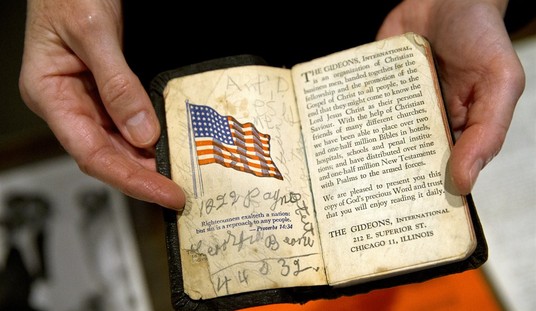 1822 Rayno
Righteousness exalteth a nation:
but sin is a reproach to any people.
—Proverbs 14:34
44832
THE GIDEONS, INTERNATIONAL,
is an organization of Christian
business men, banded together for the
fellowship and the promotion of the
Gospel of Christ to all people, to the
end that they might come to know the
Lord Jesus Christ as their personal
Saviour. With the help of Christian
friends of many different churches,
we have been able to place over two
and one-half million Bibles in hotels,
hospitals, schools and penal institu-
tions; and have distributed over nine
and one-half million New Testaments
with Psalms to the armed forces.
We are pleased to present you this
copy of God's precious Word and trust
that you will enjoy reading it daily.
THE GIDEONS, INTERNATIONAL
212 E. SUPERIOR ST.
CHICAGO 11, ILLINOIS